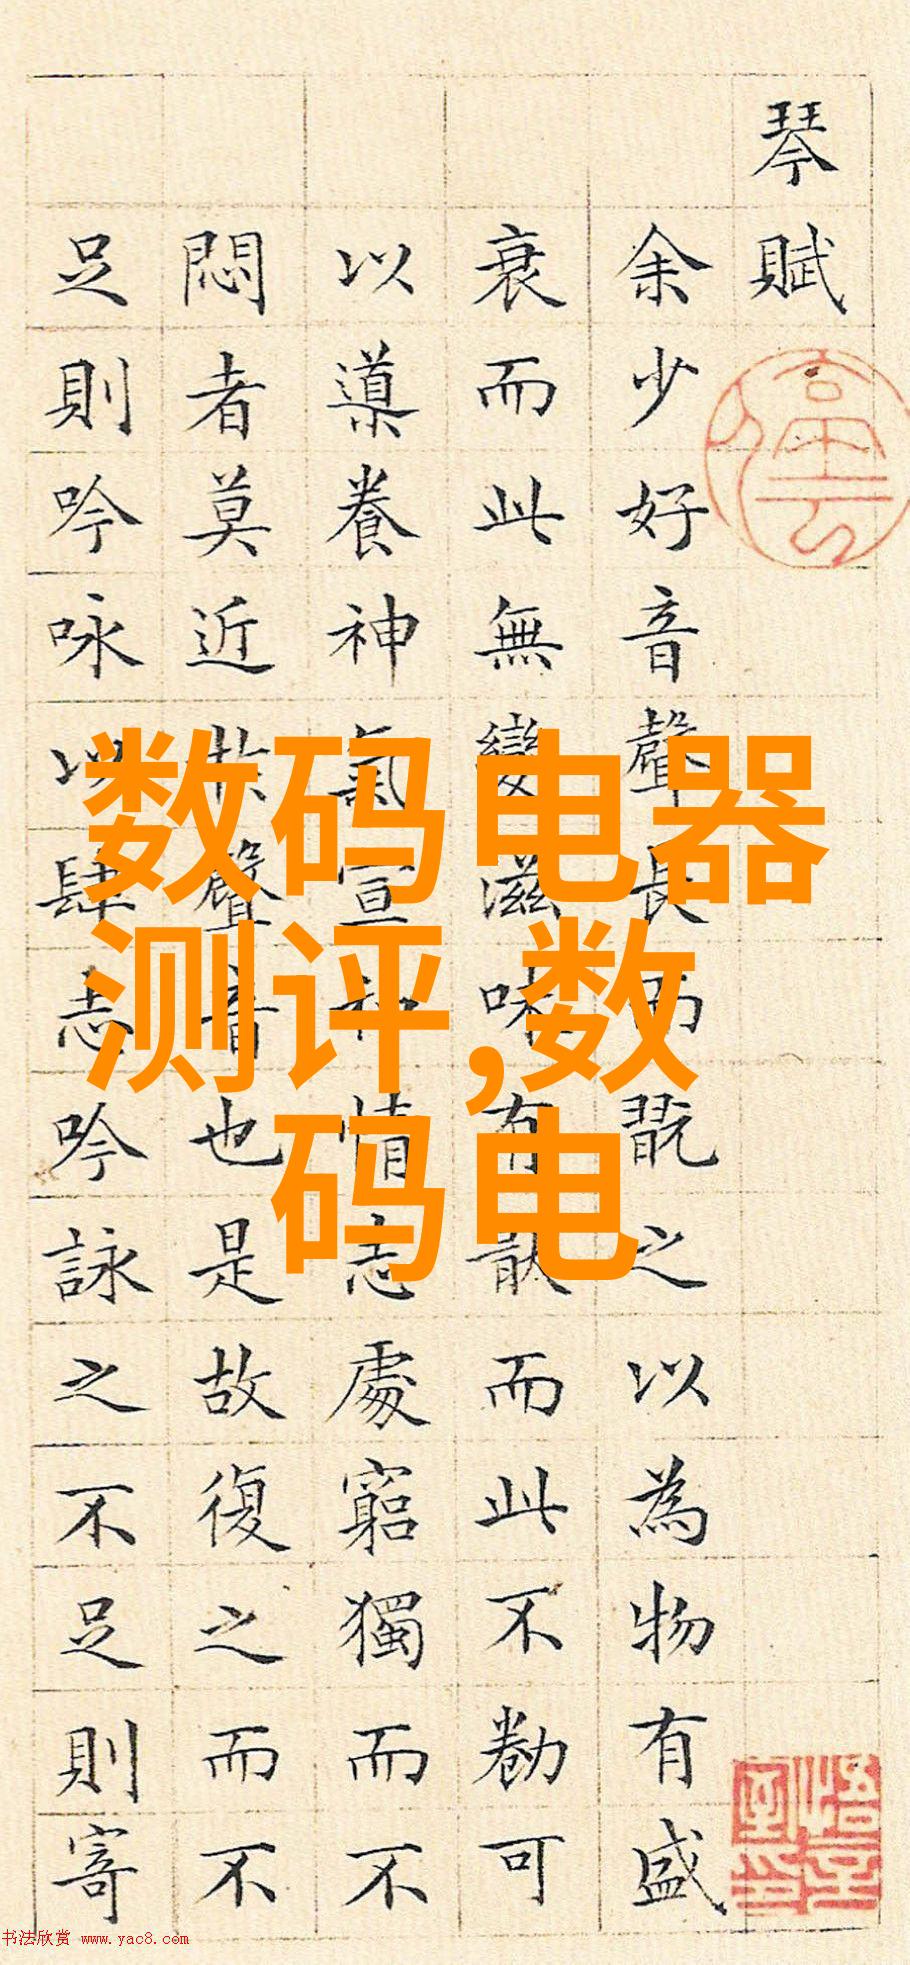 琴賦
余少好音聲長而翫之以為物有盛
衰而此無變滋味有猒而此不勌可
以導養神氣宣和情志處窮獨而不
悶者莫近於聲音也是故復之而不
足則吟咏以肆志吟詠之不足則寄
数码电器
测评,数
码电
书法欣赏 www.yac8.com